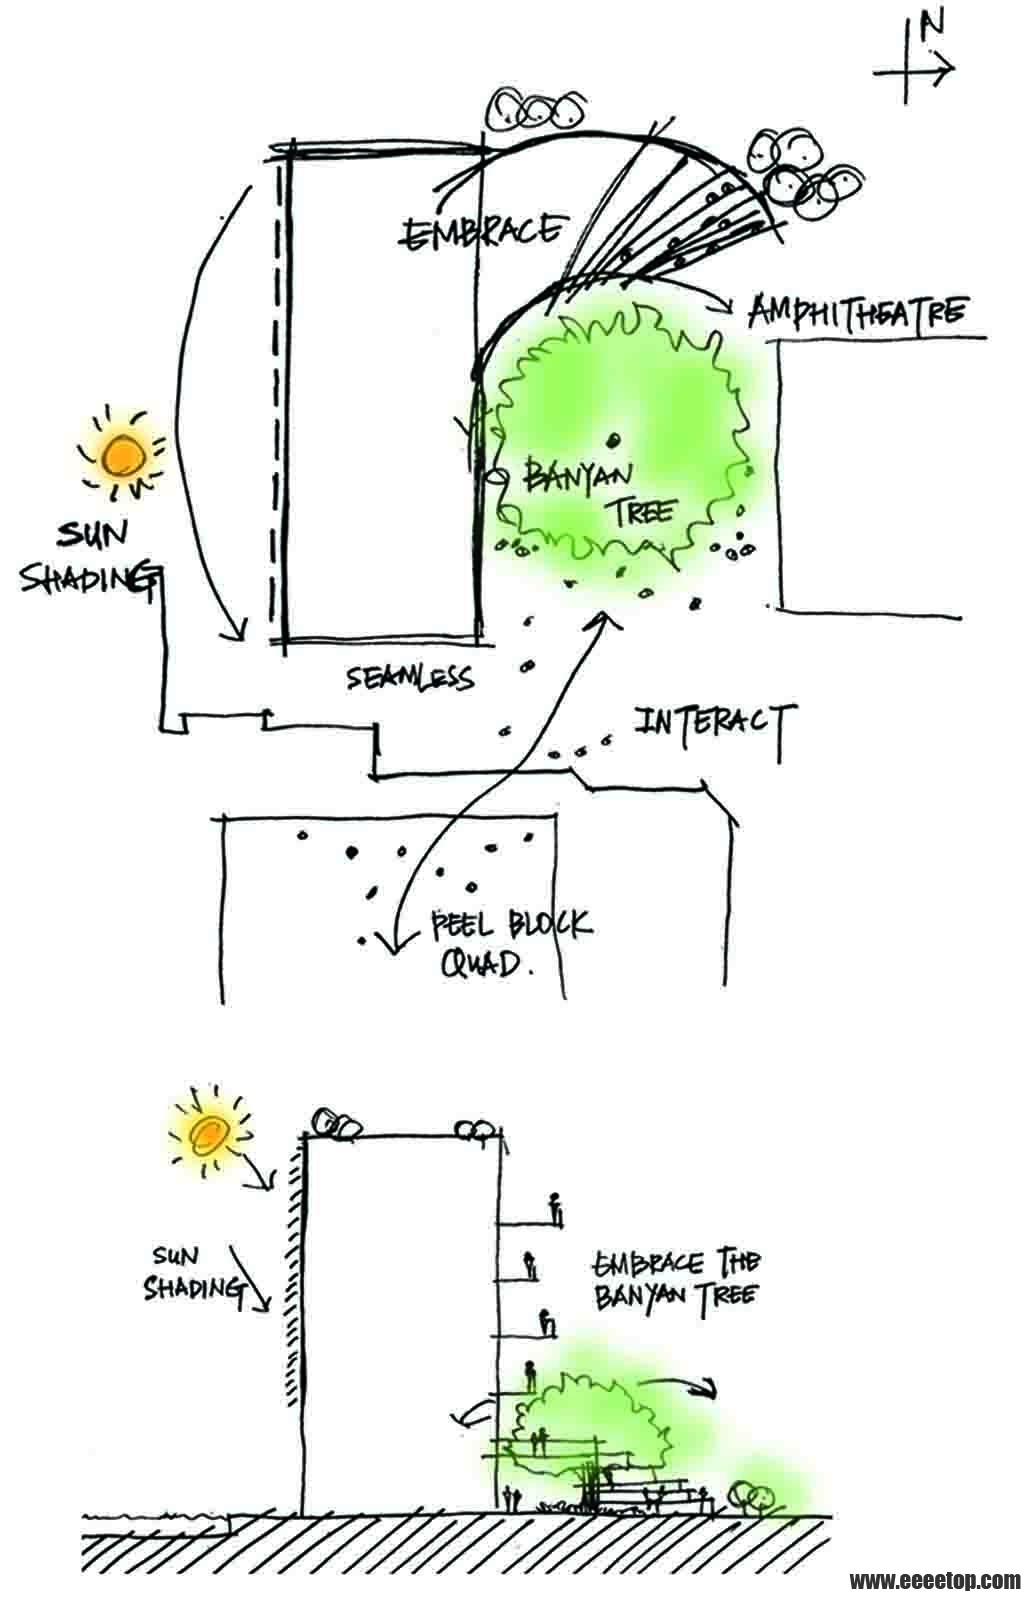 N
EMBRACE
AMPHITHEATRE
BANYAN
TREE
SUN
SHADING
SEAMLESS
INTERACT
PEEL BLOCK
QUAD.
SUN
SHADING
EMBRACE THE
BANYAN TREE
www.eeeetop.com